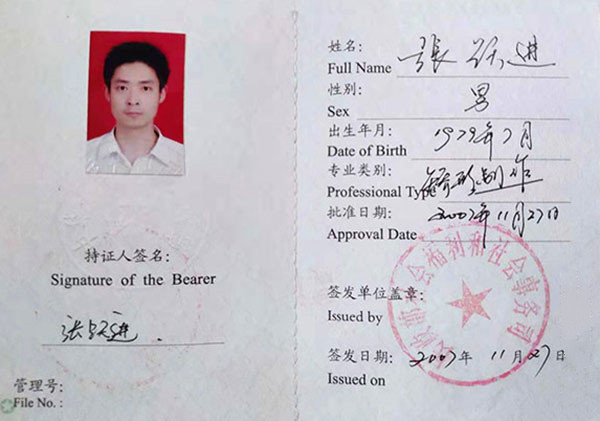 持证人签名:
Signature of the Bearer
张跃进
管理号:
File No. :
姓名: 張跃进
Full Name
性别: 男
Sex
出生年月: 1979年7月
Date of Birth
专业类别: 矫形制作
Professional Type
批准日期: 2007年11月27日
Approval Date
签发单位盖章:
Issued by
会福利和社会事务司
签发日期: 2007年11月27日
Issued on